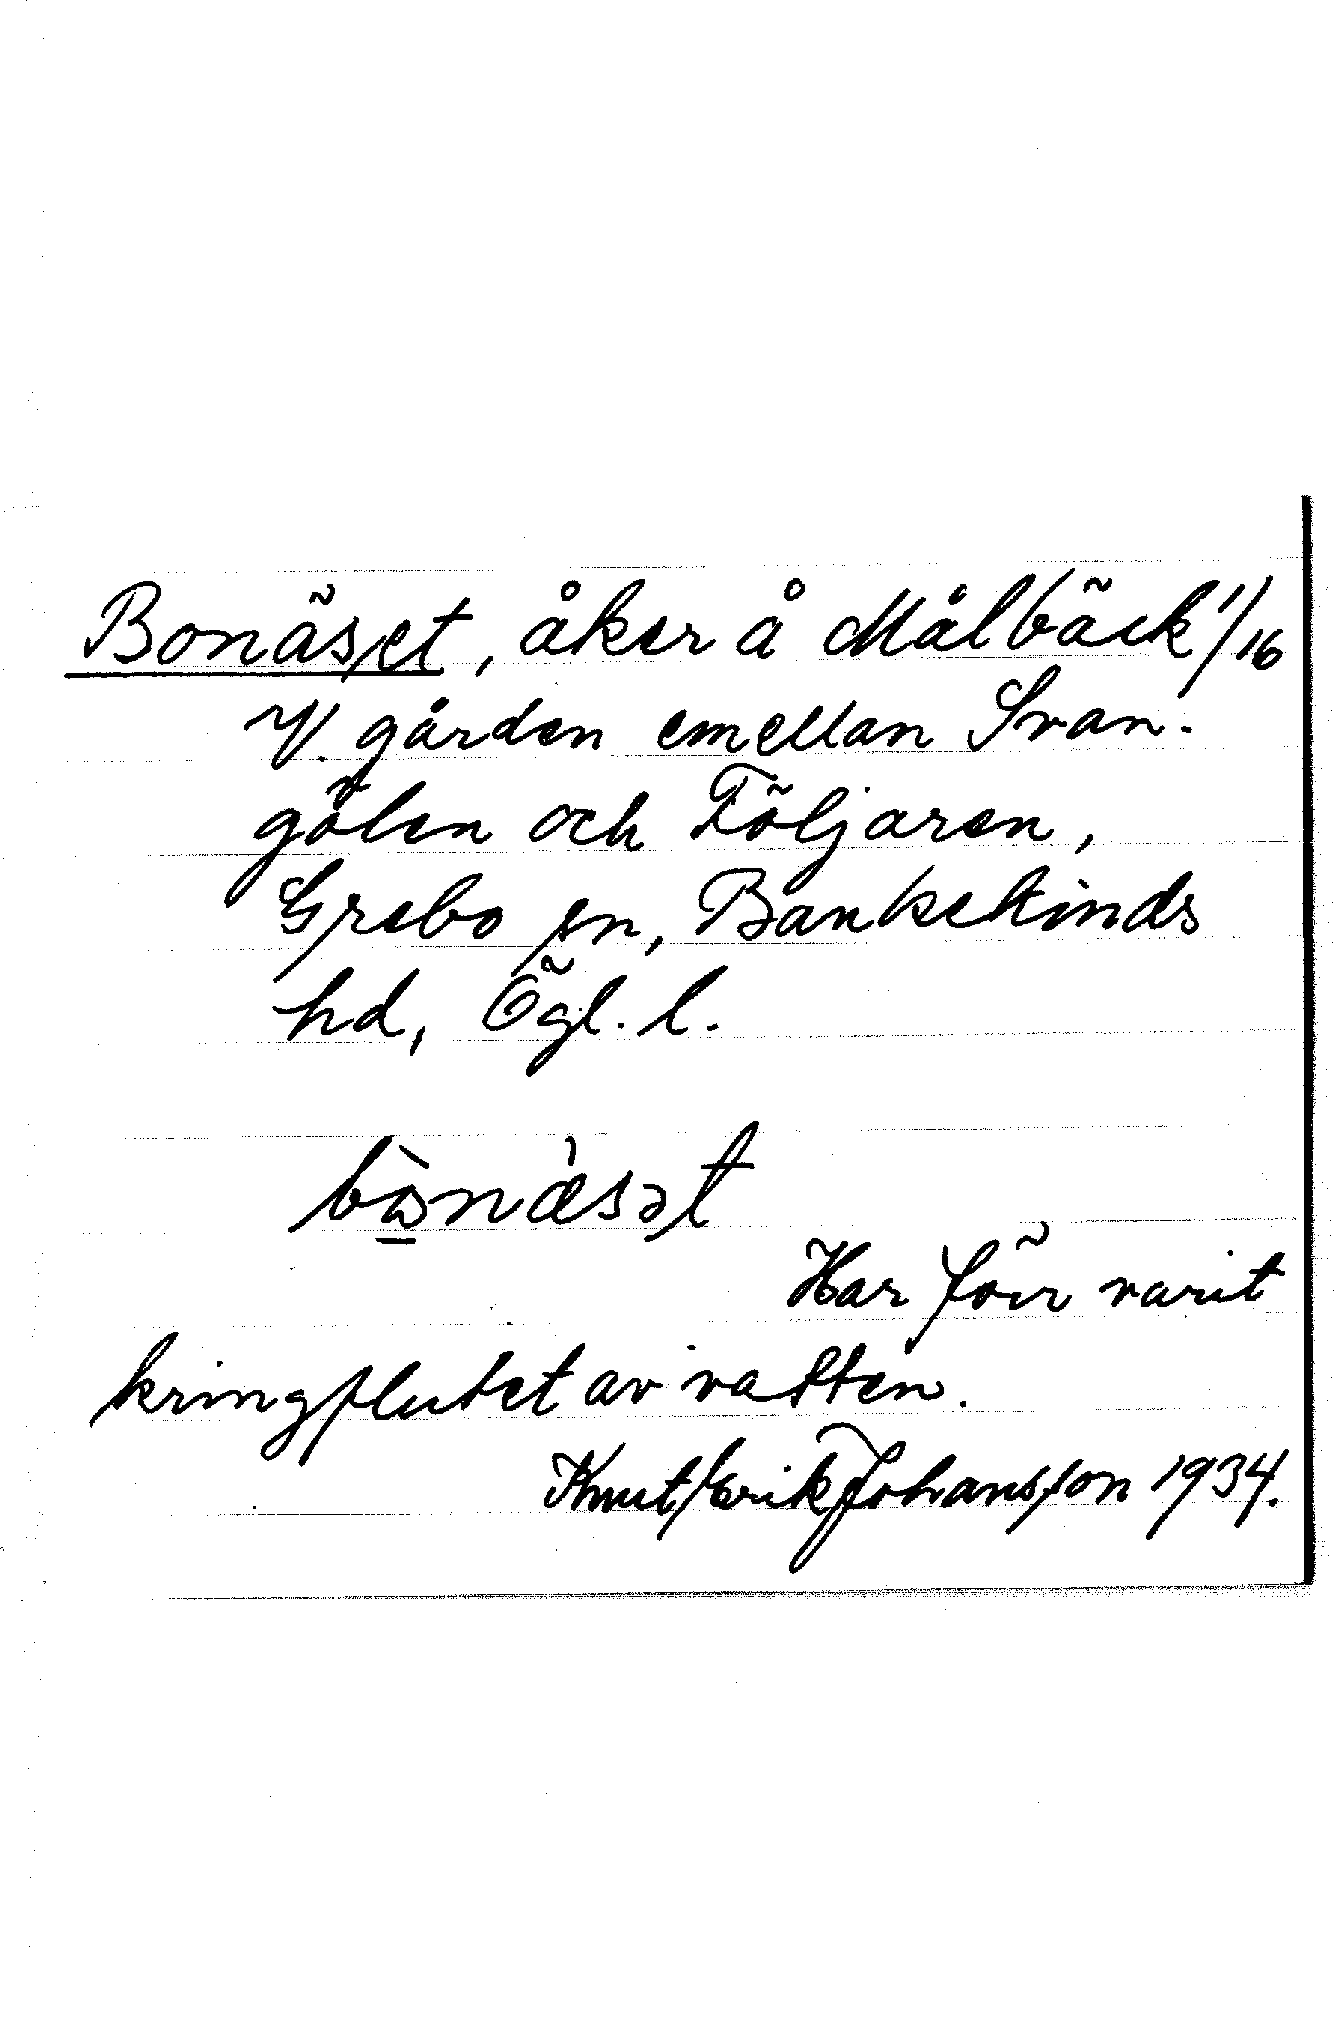 Bonäset, åker å Målbäck 1/16
V. gården emellan Svan-
gölen och Följaren,
Grebo sn, Bankekinds
hd, Ögl. l.
bònä̀sət
Har förr varit
kringflutet av vatten.
Knut Erik Johansson 1934.